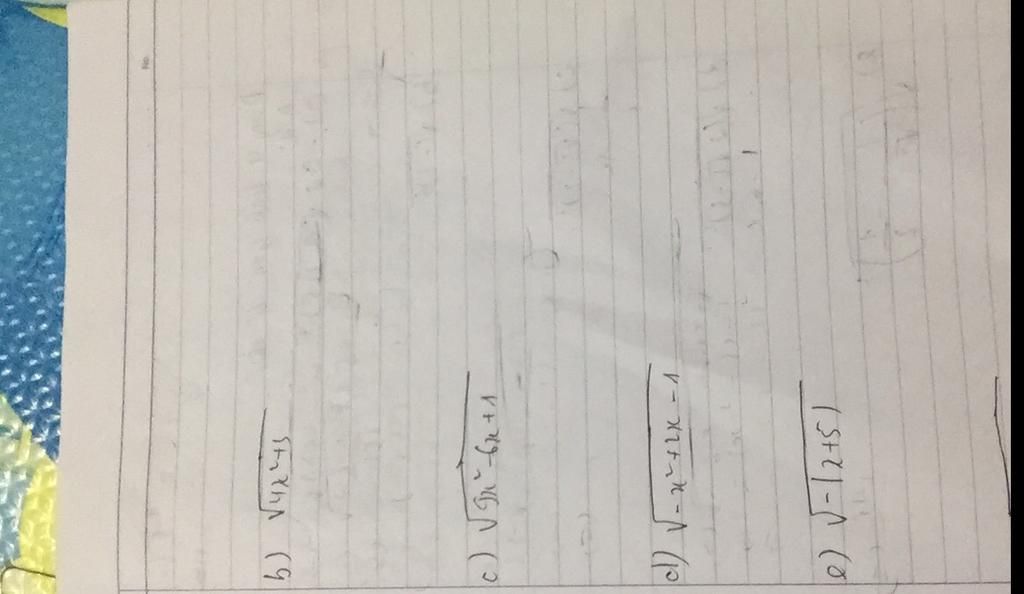 No.
b) √4x²+3
c) √9x²-6x+1
d) √-x²+2x-1
e) √-|x+5|